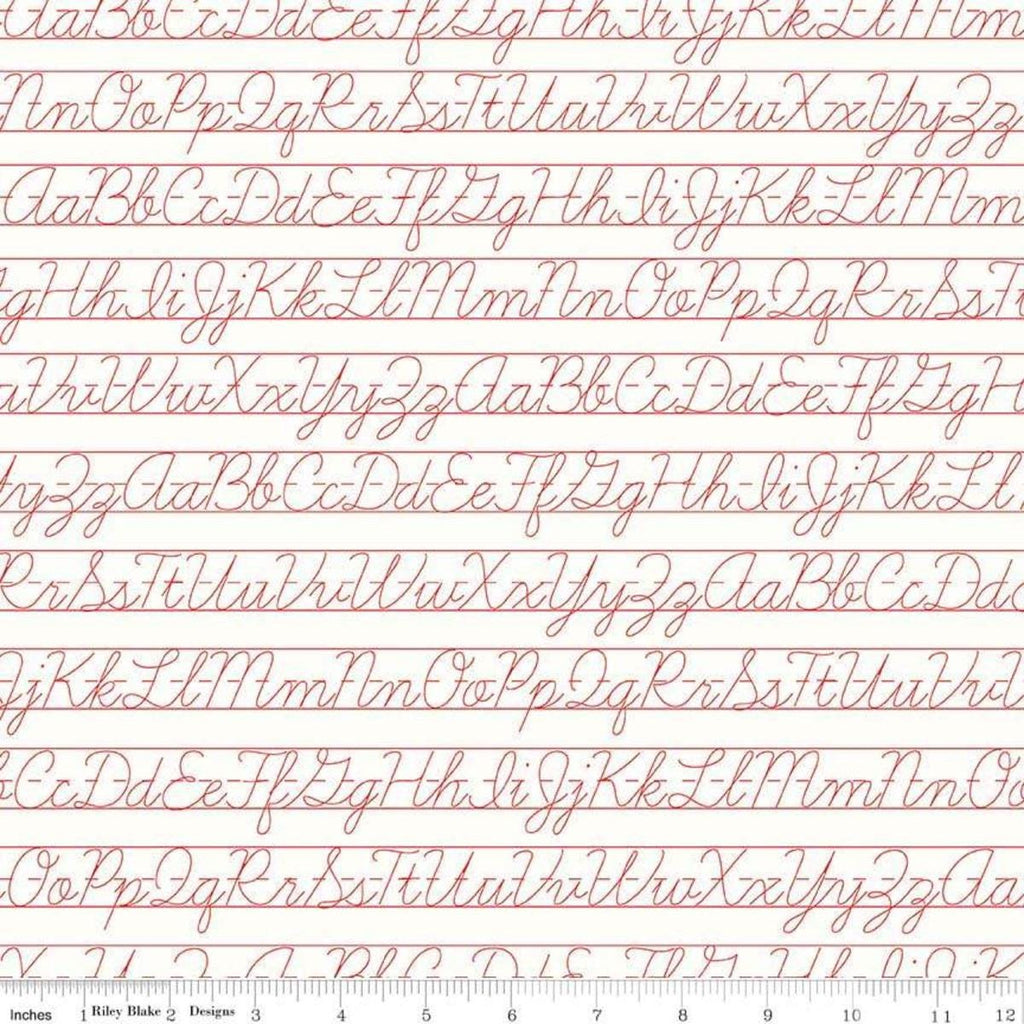 AaBbCcDdEeFfGgHhIiJjKkLlMm
NnOoPpQqRrSsTtUuVvWwXxYyZz
AaBbCcDdEeFfGgHhIiJjKkLlMm
gHhIiJjKkLlMmNnOoPpQqRrSsT
uVvWwXxYyZzAaBbCcDdEeFfGgH
yZzAaBbCcDdEeFfGgHhIiJjKkLl
RrSsTtUuVvWwXxYyZzAaBbCcDd
JjKkLlMmNnOoPpQqRrSsTtUuVv
bCcDdEeFfGgHhIiJjKkLlMmNnOo
OoPpQqRrSsTtUuVvWwXxYyZzAa
X Y Z A B b C D d E F f G H h I J K
Inches 1 Riley Blake 2 Designs 3 4 5 6 7 8 9 10 11 12